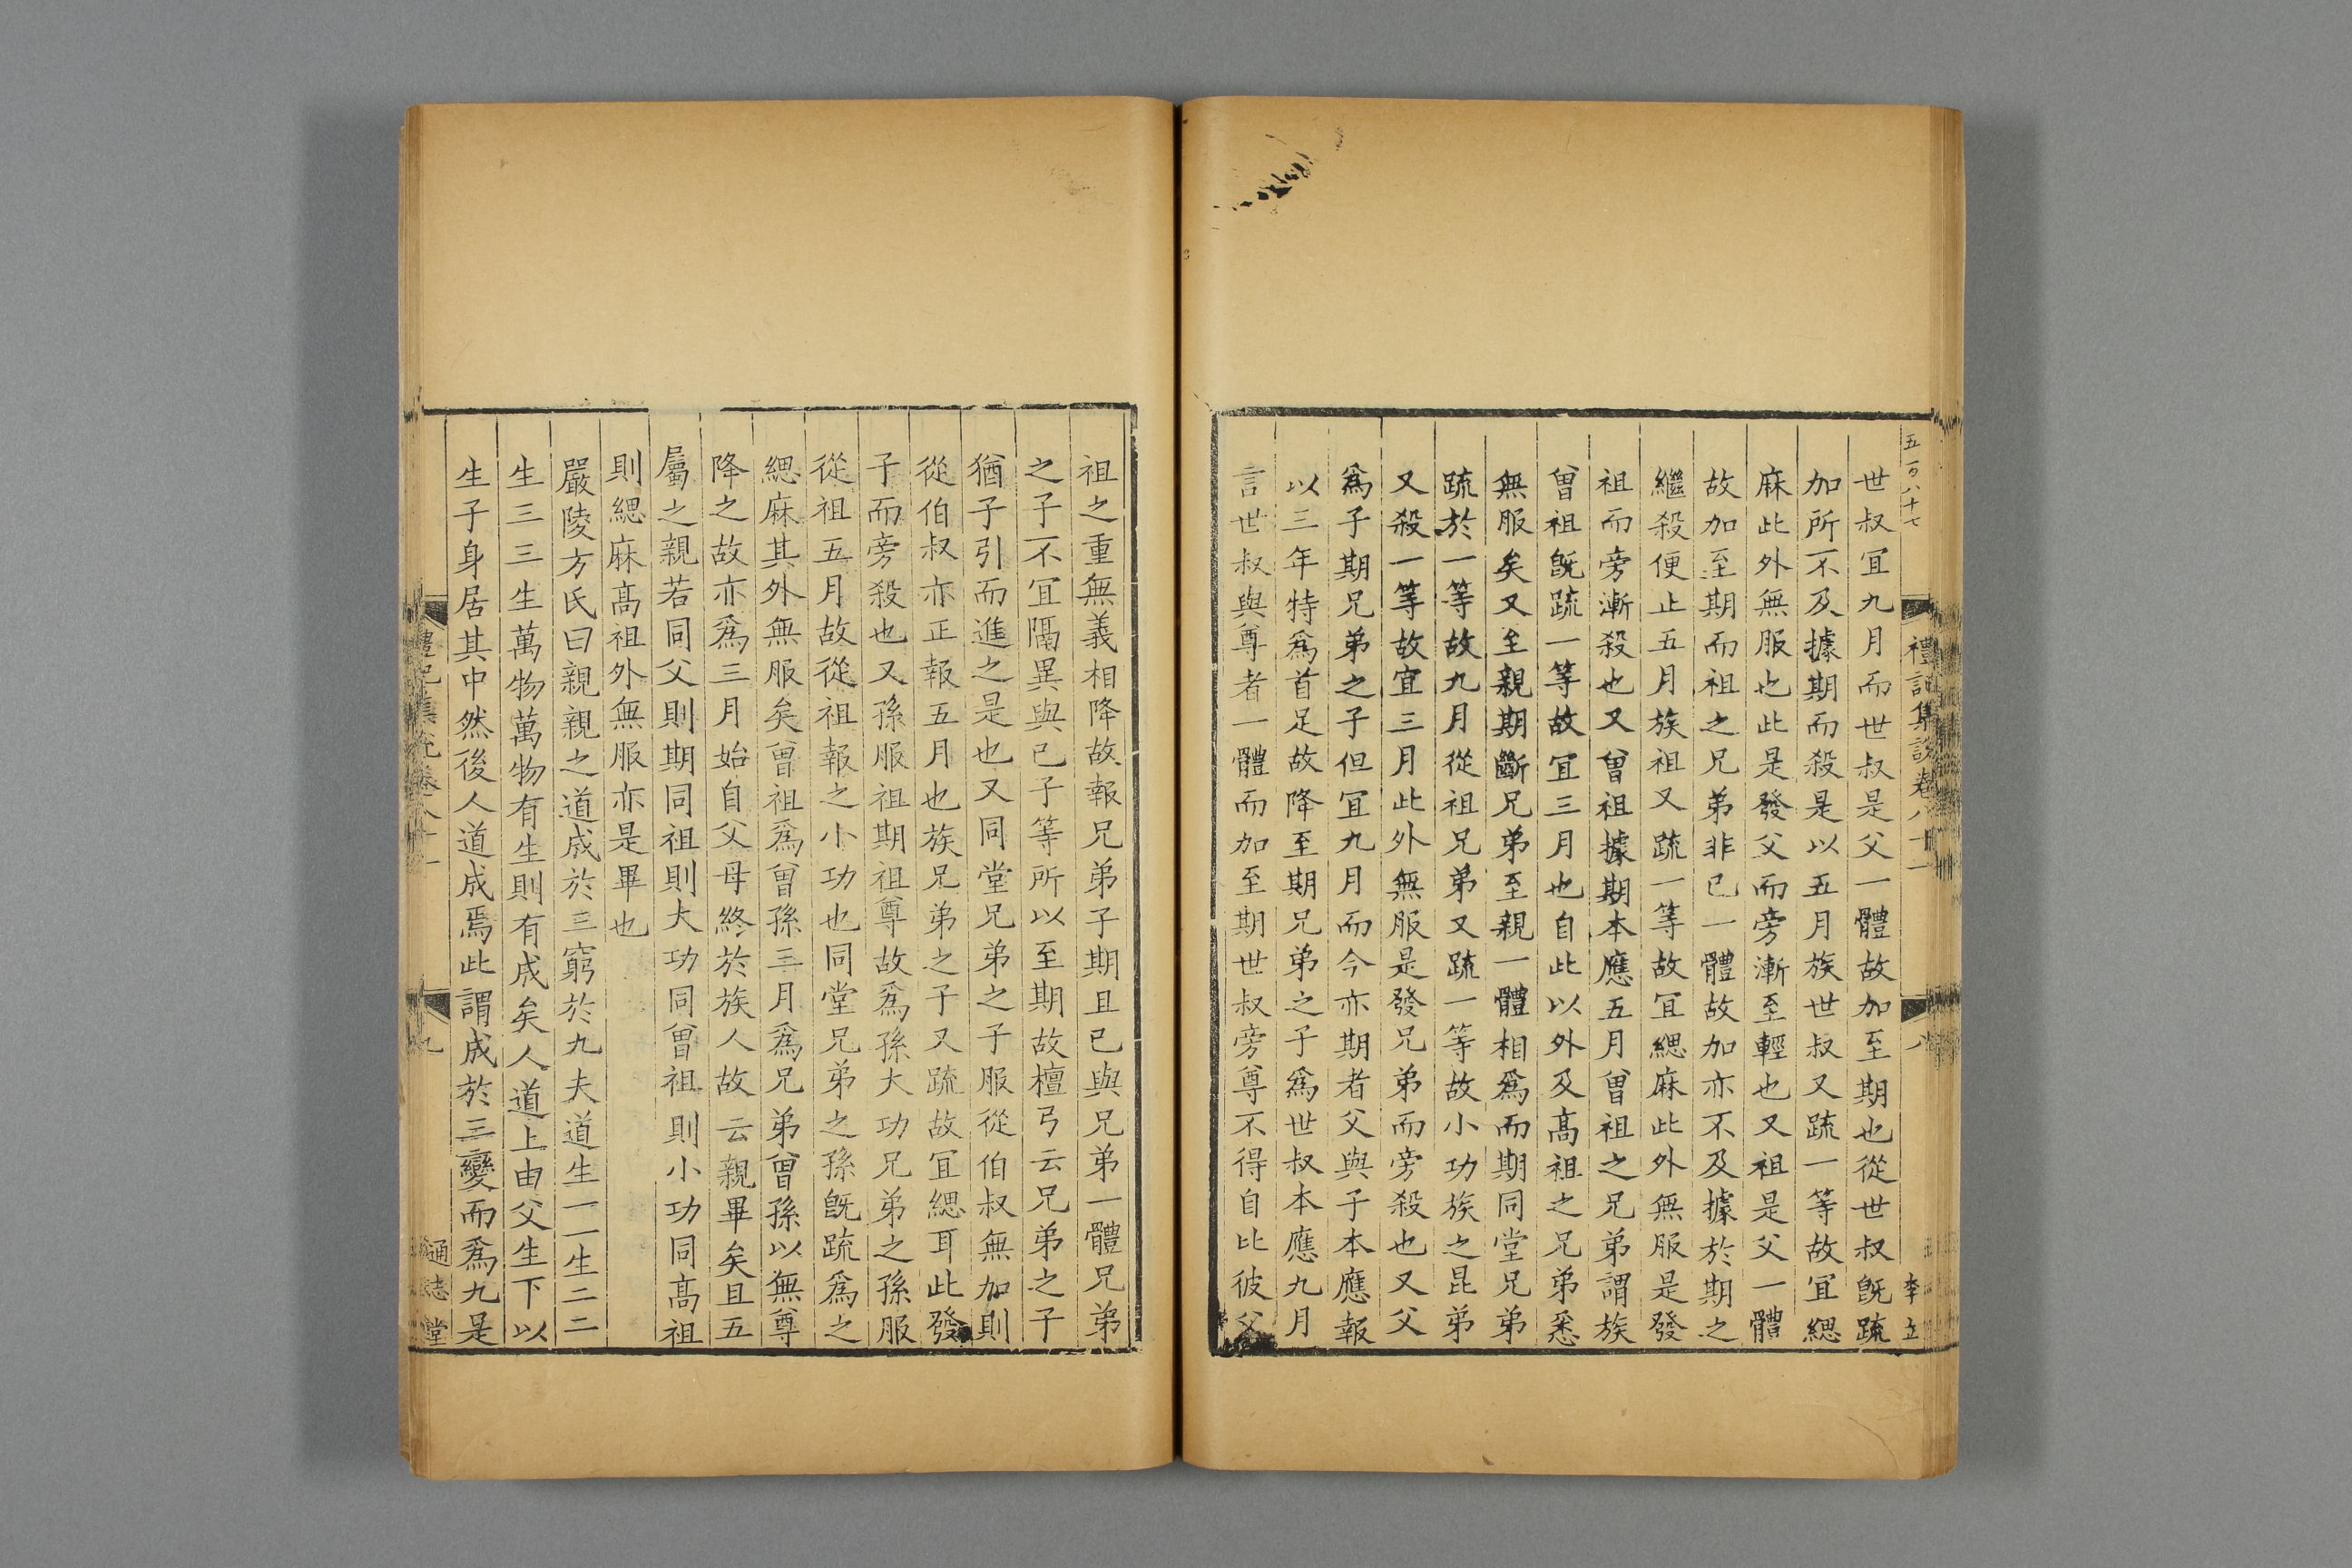 五百八十七
禮記集說卷八十一
八
李立
世叔宜九月而世叔是父一體故加至期也從世叔旣疏
加所不及據期而殺是以五月族世叔又疏一等故宜緦
麻此外無服也此是發父而旁漸至輕也又祖是父一體
故加至期而祖之兄弟非已一體故加亦不及據於期之
繼殺便止五月族祖又疏一等故宜緦麻此外無服是發
祖而旁漸殺也又曾祖據期本應五月曾祖之兄弟謂族
曾祖旣疏一等故宜三月也自此以外及髙祖之兄弟悉
無服矣又至親期斷兄弟至親一體相爲而期同堂兄弟
疏於一等故九月從祖兄弟又疏一等故小功族之昆弟
又殺一等故宜三月此外無服是發兄弟而旁殺也又父
爲子期兄弟之子但宜九月而今亦期者父與子本應報
以三年特爲首足故降至期兄弟之子爲世叔本應九月
言世叔與尊者一體而加至期世叔旁尊不得自比彼父
祖之重無義相降故報兄弟子期且已與兄弟一體兄弟
之子不宜隔異與已子等所以至期故檀弓云兄弟之子
猶子引而進之是也又同堂兄弟之子服從伯叔無加則
從伯叔亦正報五月也族兄弟之子又疏故宜緦耳此發
子而旁殺也又孫服祖期祖尊故爲孫大功兄弟之孫服
從祖五月故從祖報之小功也同堂兄弟之孫旣疏爲之
緦麻其外無服矣曾祖爲曾孫三月爲兄弟曾孫以無尊
降之故亦爲三月始自父母終於族人故云親畢矣且五
屬之親若同父則期同祖則大功同曾祖則小功同髙祖
則緦麻髙祖外無服亦是畢也
嚴陵方氏曰親親之道成於三窮於九夫道生一一生二二
生三三生萬物萬物有生則有成矣人道上由父生下以
生子身居其中然後人道成焉此謂成於三變而爲九是
禮記集說卷八十一
九
通志堂